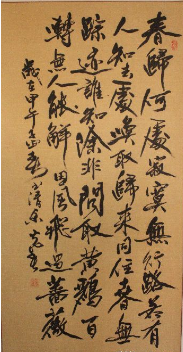 春歸何處寂寞無行路若有
人知去處喚取歸來同住春無
踪迹誰知除非問取黃鸝百
囀無人能解因風飛過薔薇
歲在甲午